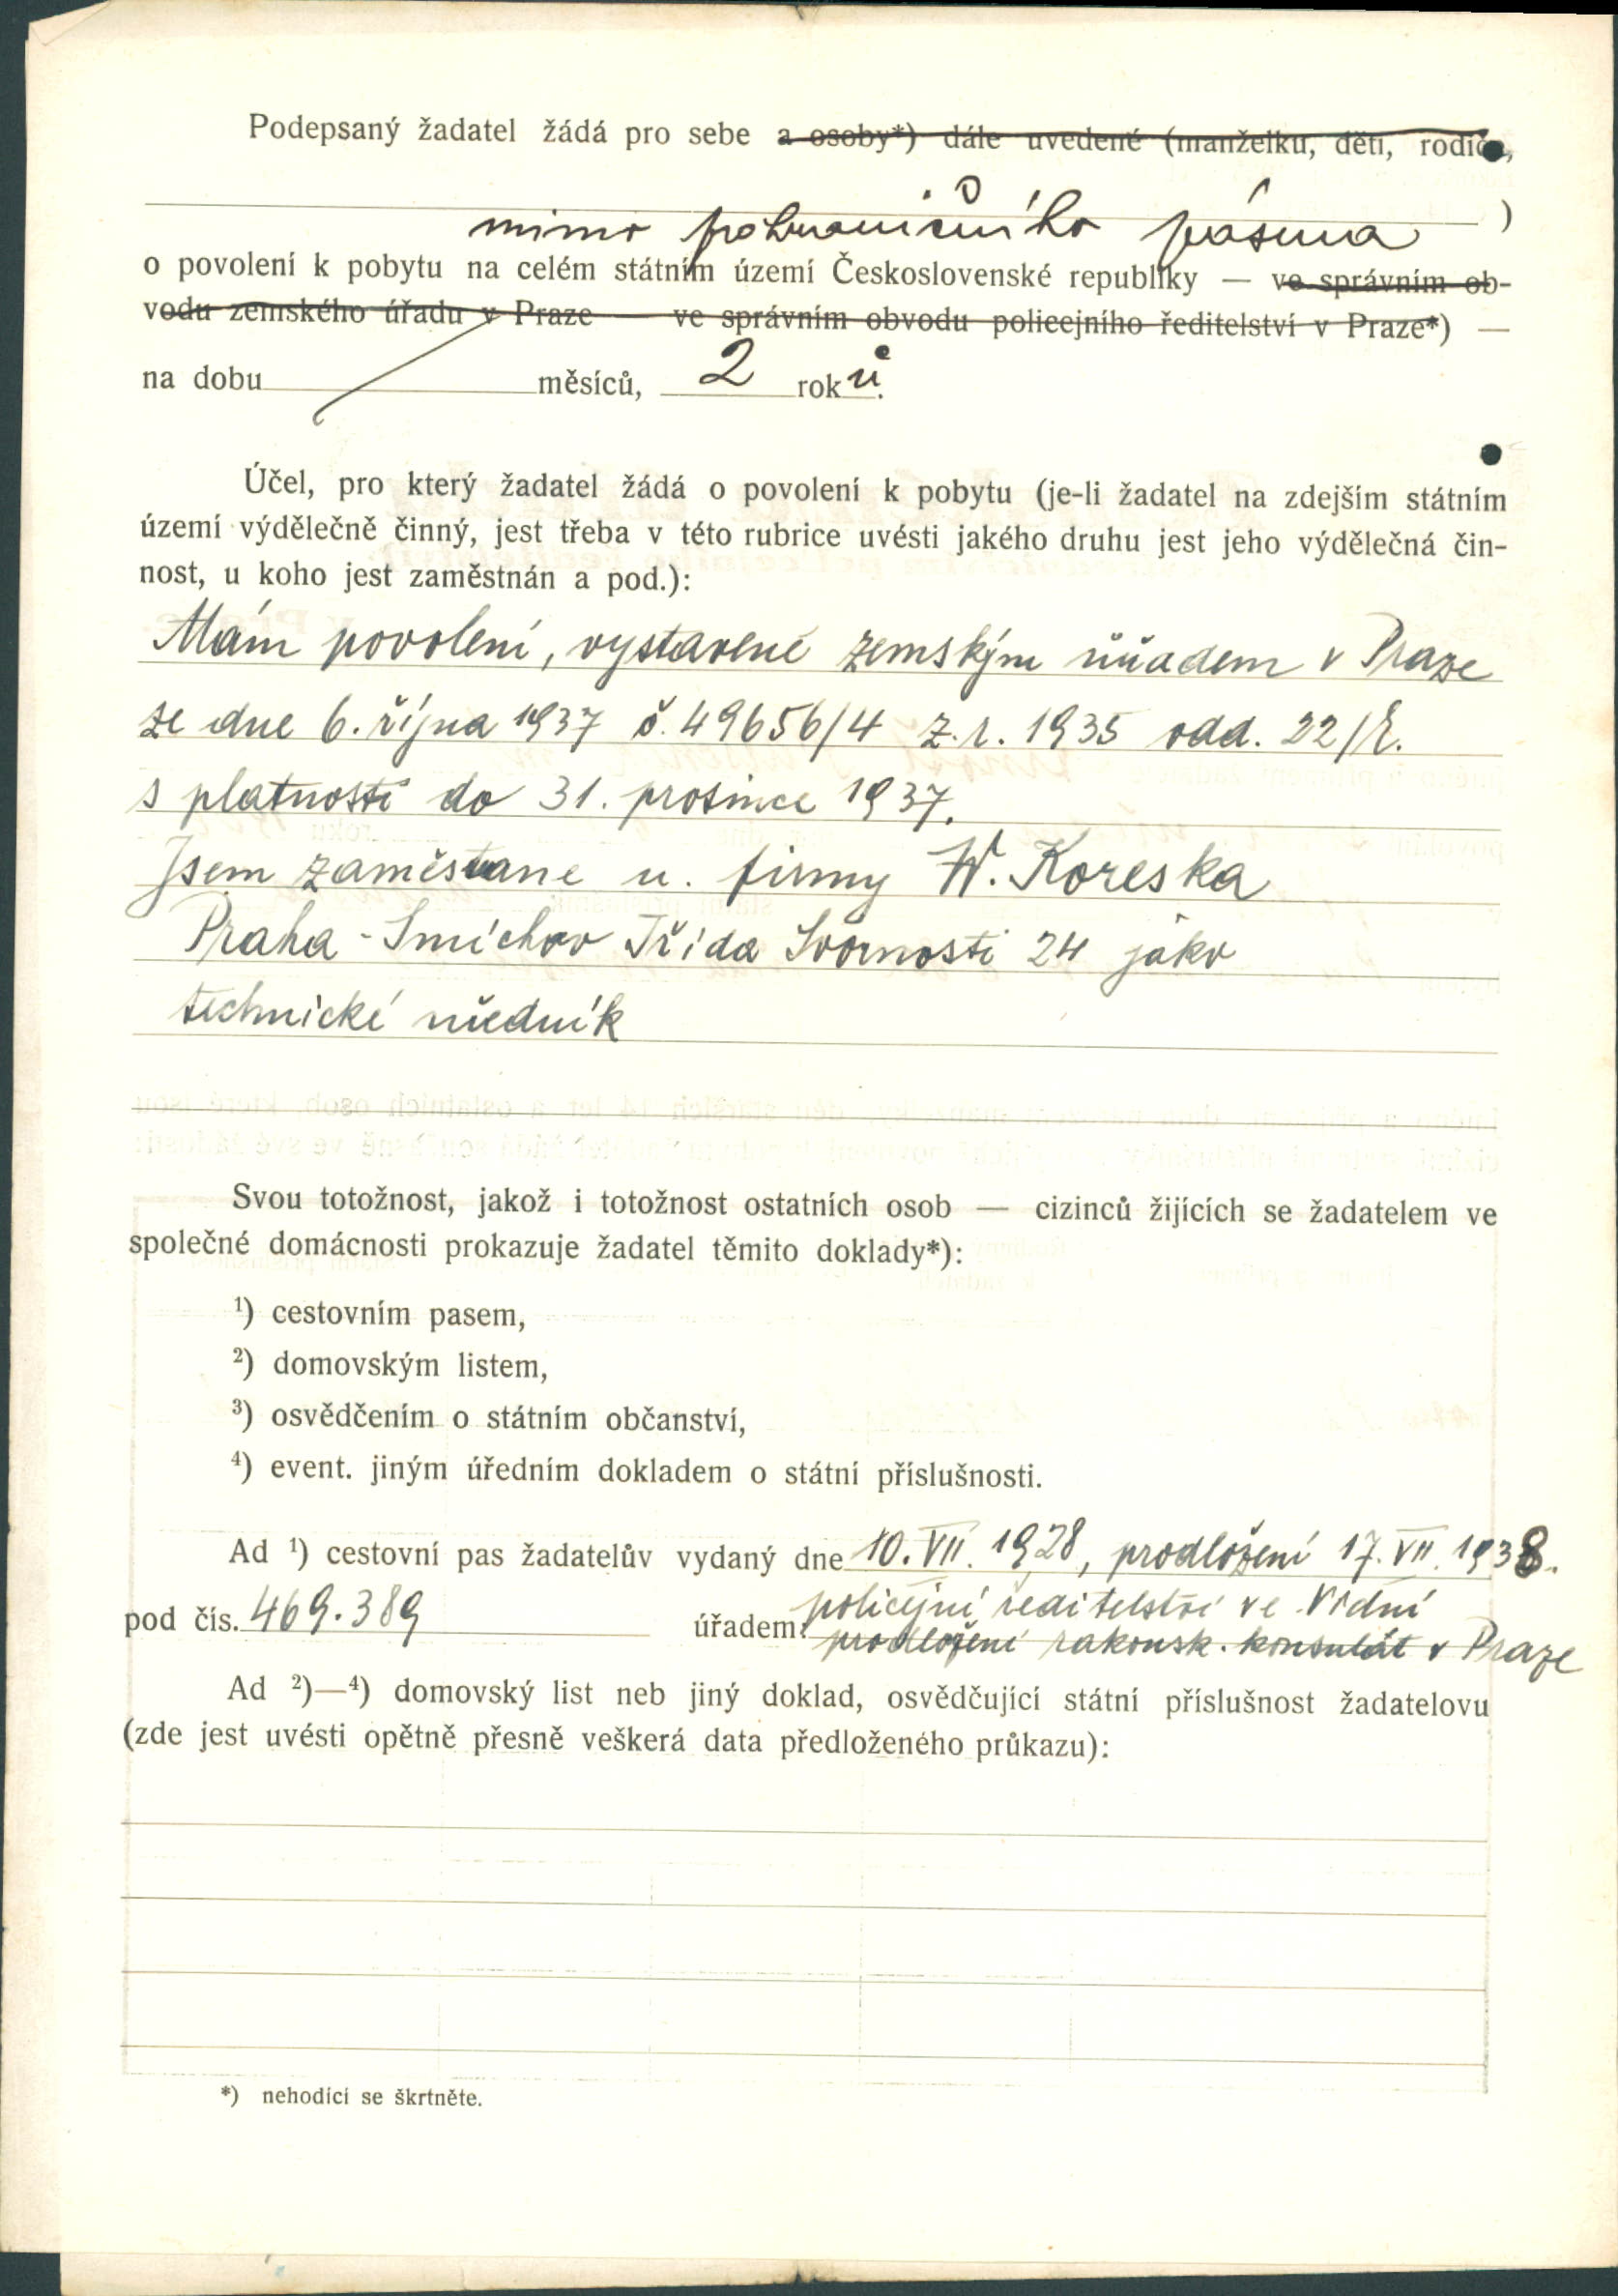 Podepsaný žadatel žádá pro sebe a osoby*) dále uvedené (manželku, děti, rodiče,
)
mimo pohraničního pásma
o povolení k pobytu na celém státním území Československé republiky — ve správním ob-
vodu zemského úřadu v Praze — ve správním obvodu policejního ředitelství v Praze*) —
na dobu měsíců, 2 roků.
Účel, pro který žadatel žádá o povolení k pobytu (je-li žadatel na zdejším státním
území výdělečně činný, jest třeba v této rubrice uvésti jakého druhu jest jeho výdělečná čin-
nost, u koho jest zaměstnán a pod.):
Mám povolení, vystavené zemským úřadem v Praze
ze dne 6. října 1937 č. 49656/4 z. r. 1935 odd. 22/E.
s platností do 31. prosince 1937.
Jsem zaměstnane u. firmy W. Koreska
Praha - Smíchov Třída Svornosti 24 jako
technické úředník
Svou totožnost, jakož i totožnost ostatních osob — cizinců žijících se žadatelem ve
společné domácnosti prokazuje žadatel těmito doklady*):
¹) cestovním pasem,
²) domovským listem,
³) osvědčením o státním občanství,
⁴) event. jiným úředním dokladem o státní příslušnosti.
Ad ¹) cestovní pas žadatelův vydaný dne 10. VII. 1928, prodložení 17. VII. 1938.
pod čís. 469.389 úřadem: policejní ředitelství ve Vídní
prodložení rakousk. konsulát v Praze
Ad ²)—⁴) domovský list neb jiný doklad, osvědčující státní příslušnost žadatelovu
(zde jest uvésti opětně přesně veškerá data předloženého průkazu):
*) nehodící se škrtněte.